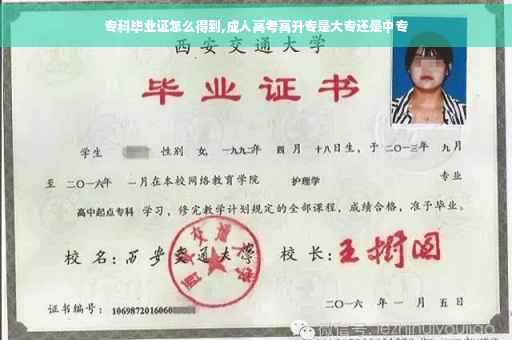 专科毕业证怎么得到,成人高考高升专是大专还是中专
西安交通大学
毕业证书
学生 性别 女, 一九九二年 四月 十八日生, 于 二〇一三年 九月
至 二〇一六年 一月在本校网络教育学院 护理学 专业
高中起点专科 学习, 修完教学计划规定的全部课程, 成绩合格, 准予毕业。
校名: 西安交通大学 校长: 王树国
证书编号: 1069872016060
二〇一六年 一月 五日
微信号: jiezhinuiyoujiao